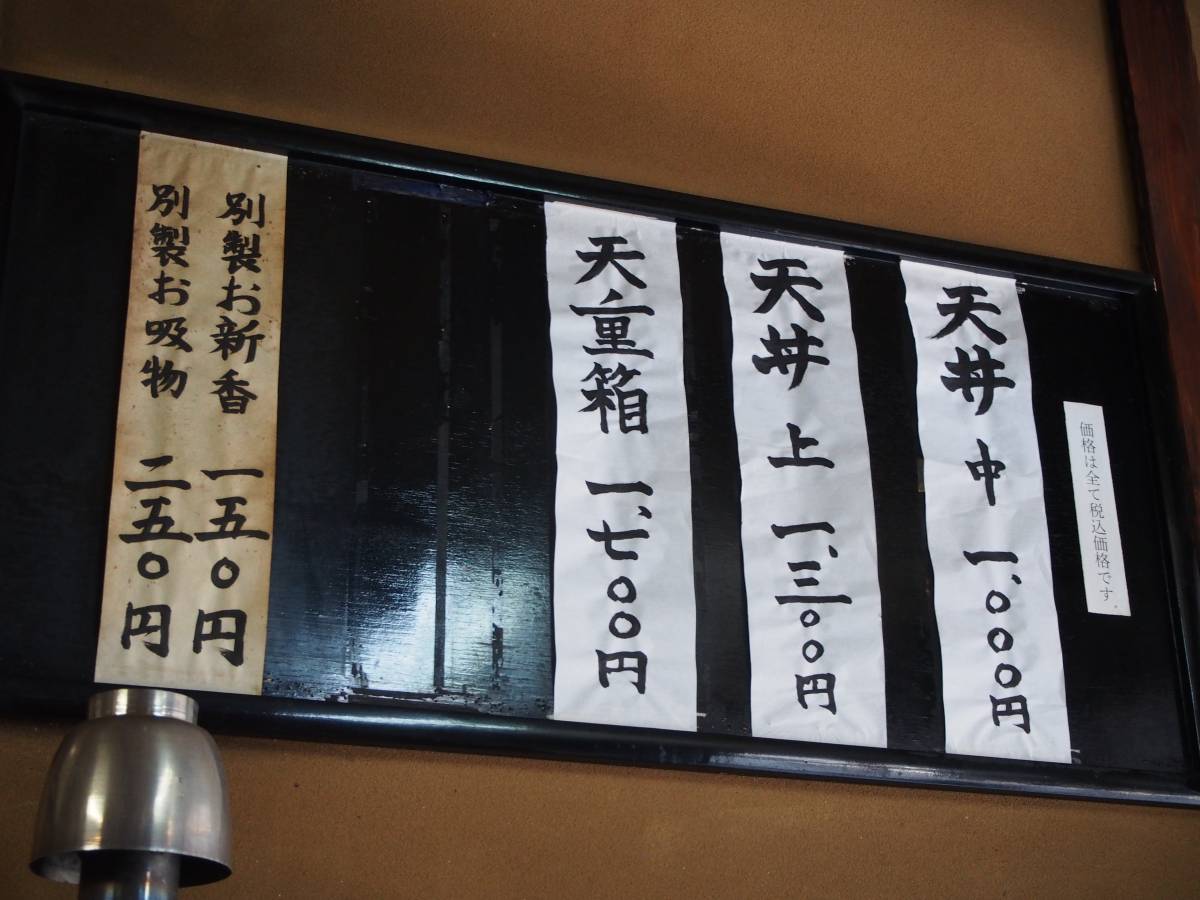 価格は全て税込価格です
天丼 中 一、〇〇〇円
天丼 上 一、三〇〇円
天重箱 一、七〇〇円
別製お新香 一五〇円
別製お吸物 二五〇円